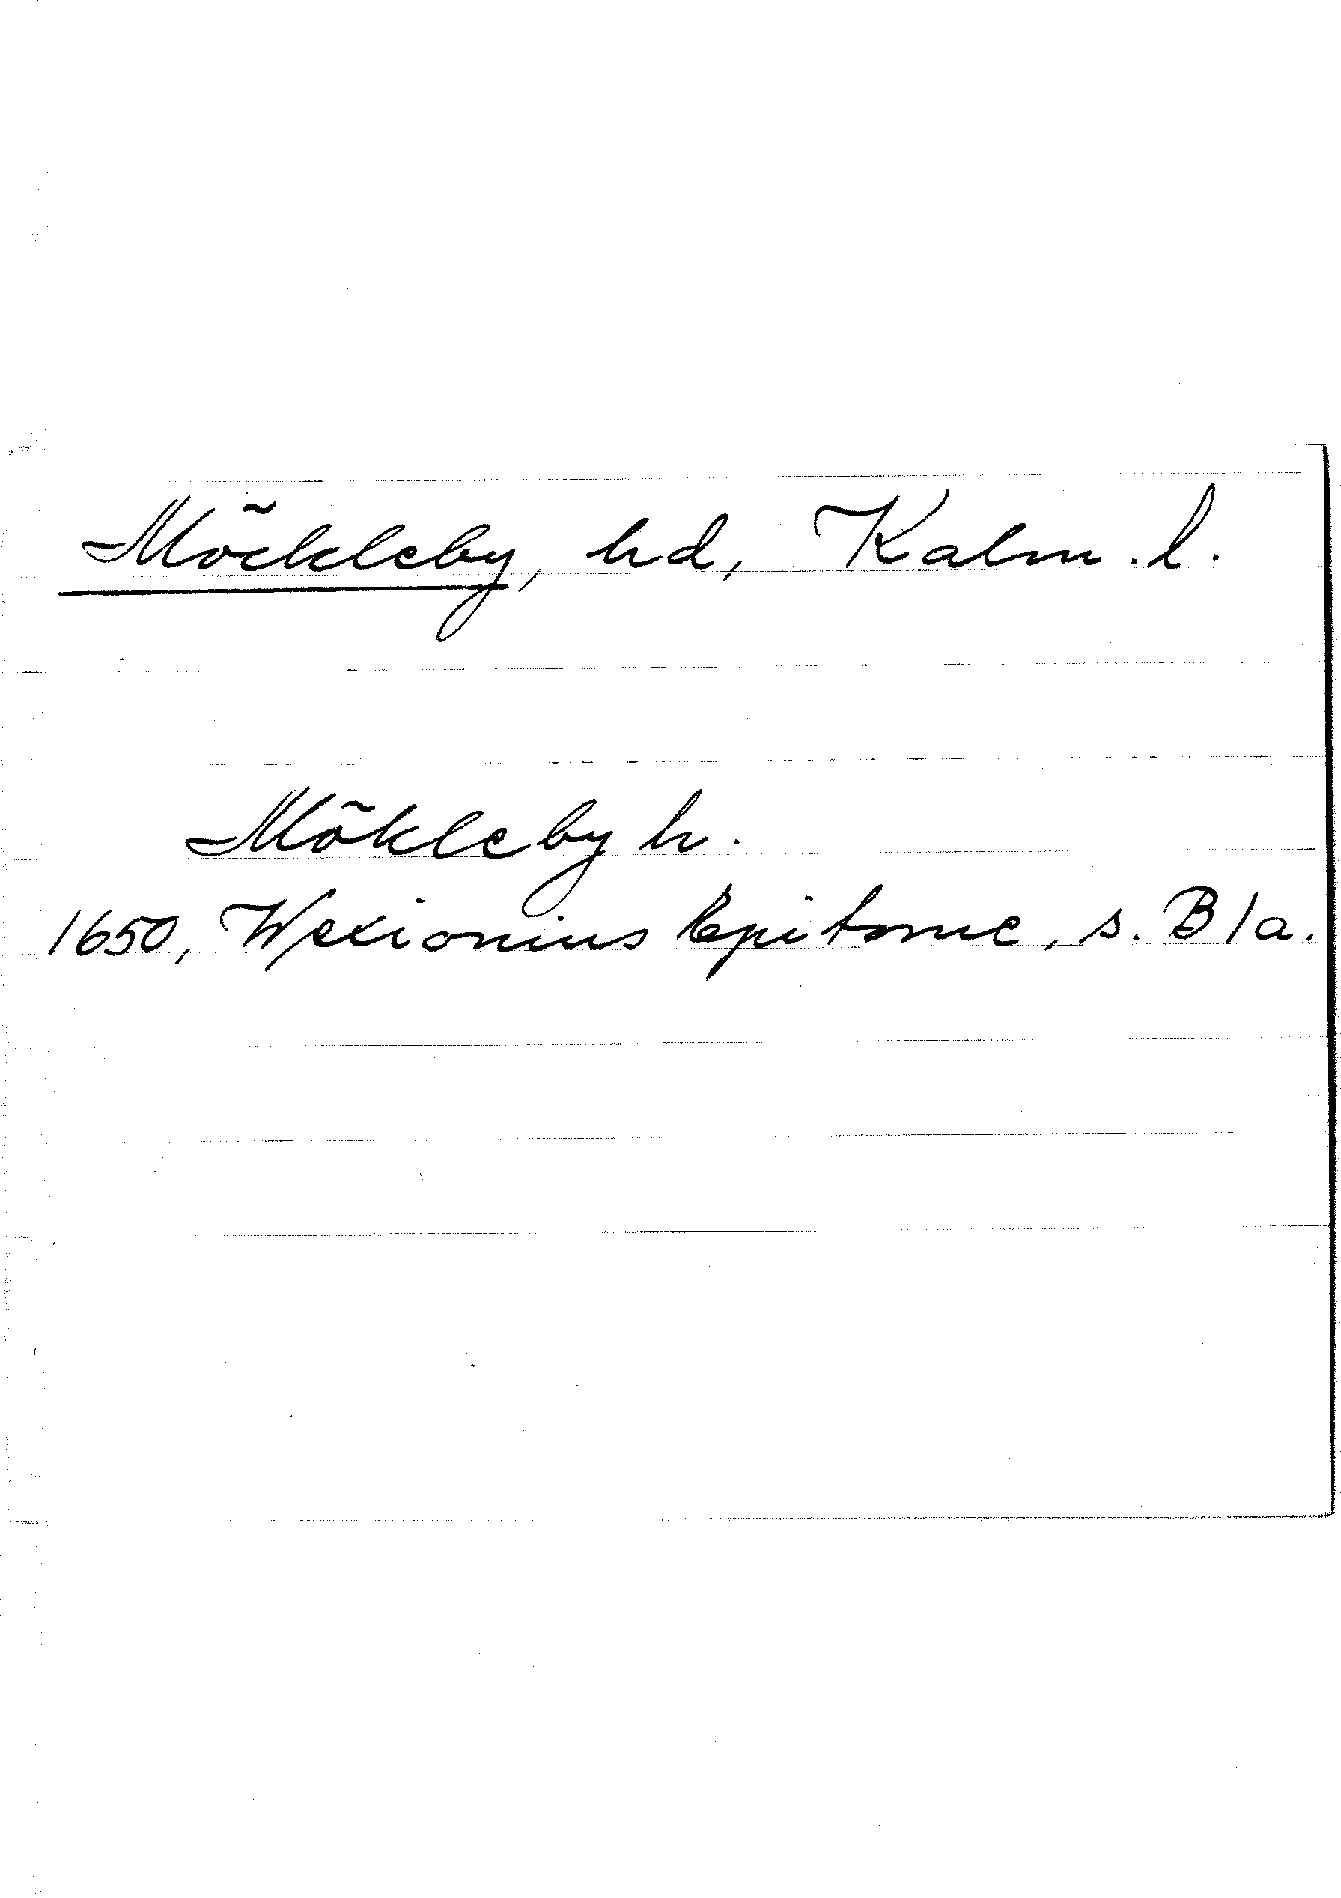 Möckleby, hd, Kalm. l.
Mökleby h.
1650, Wexionius Epitome, s. B1a.